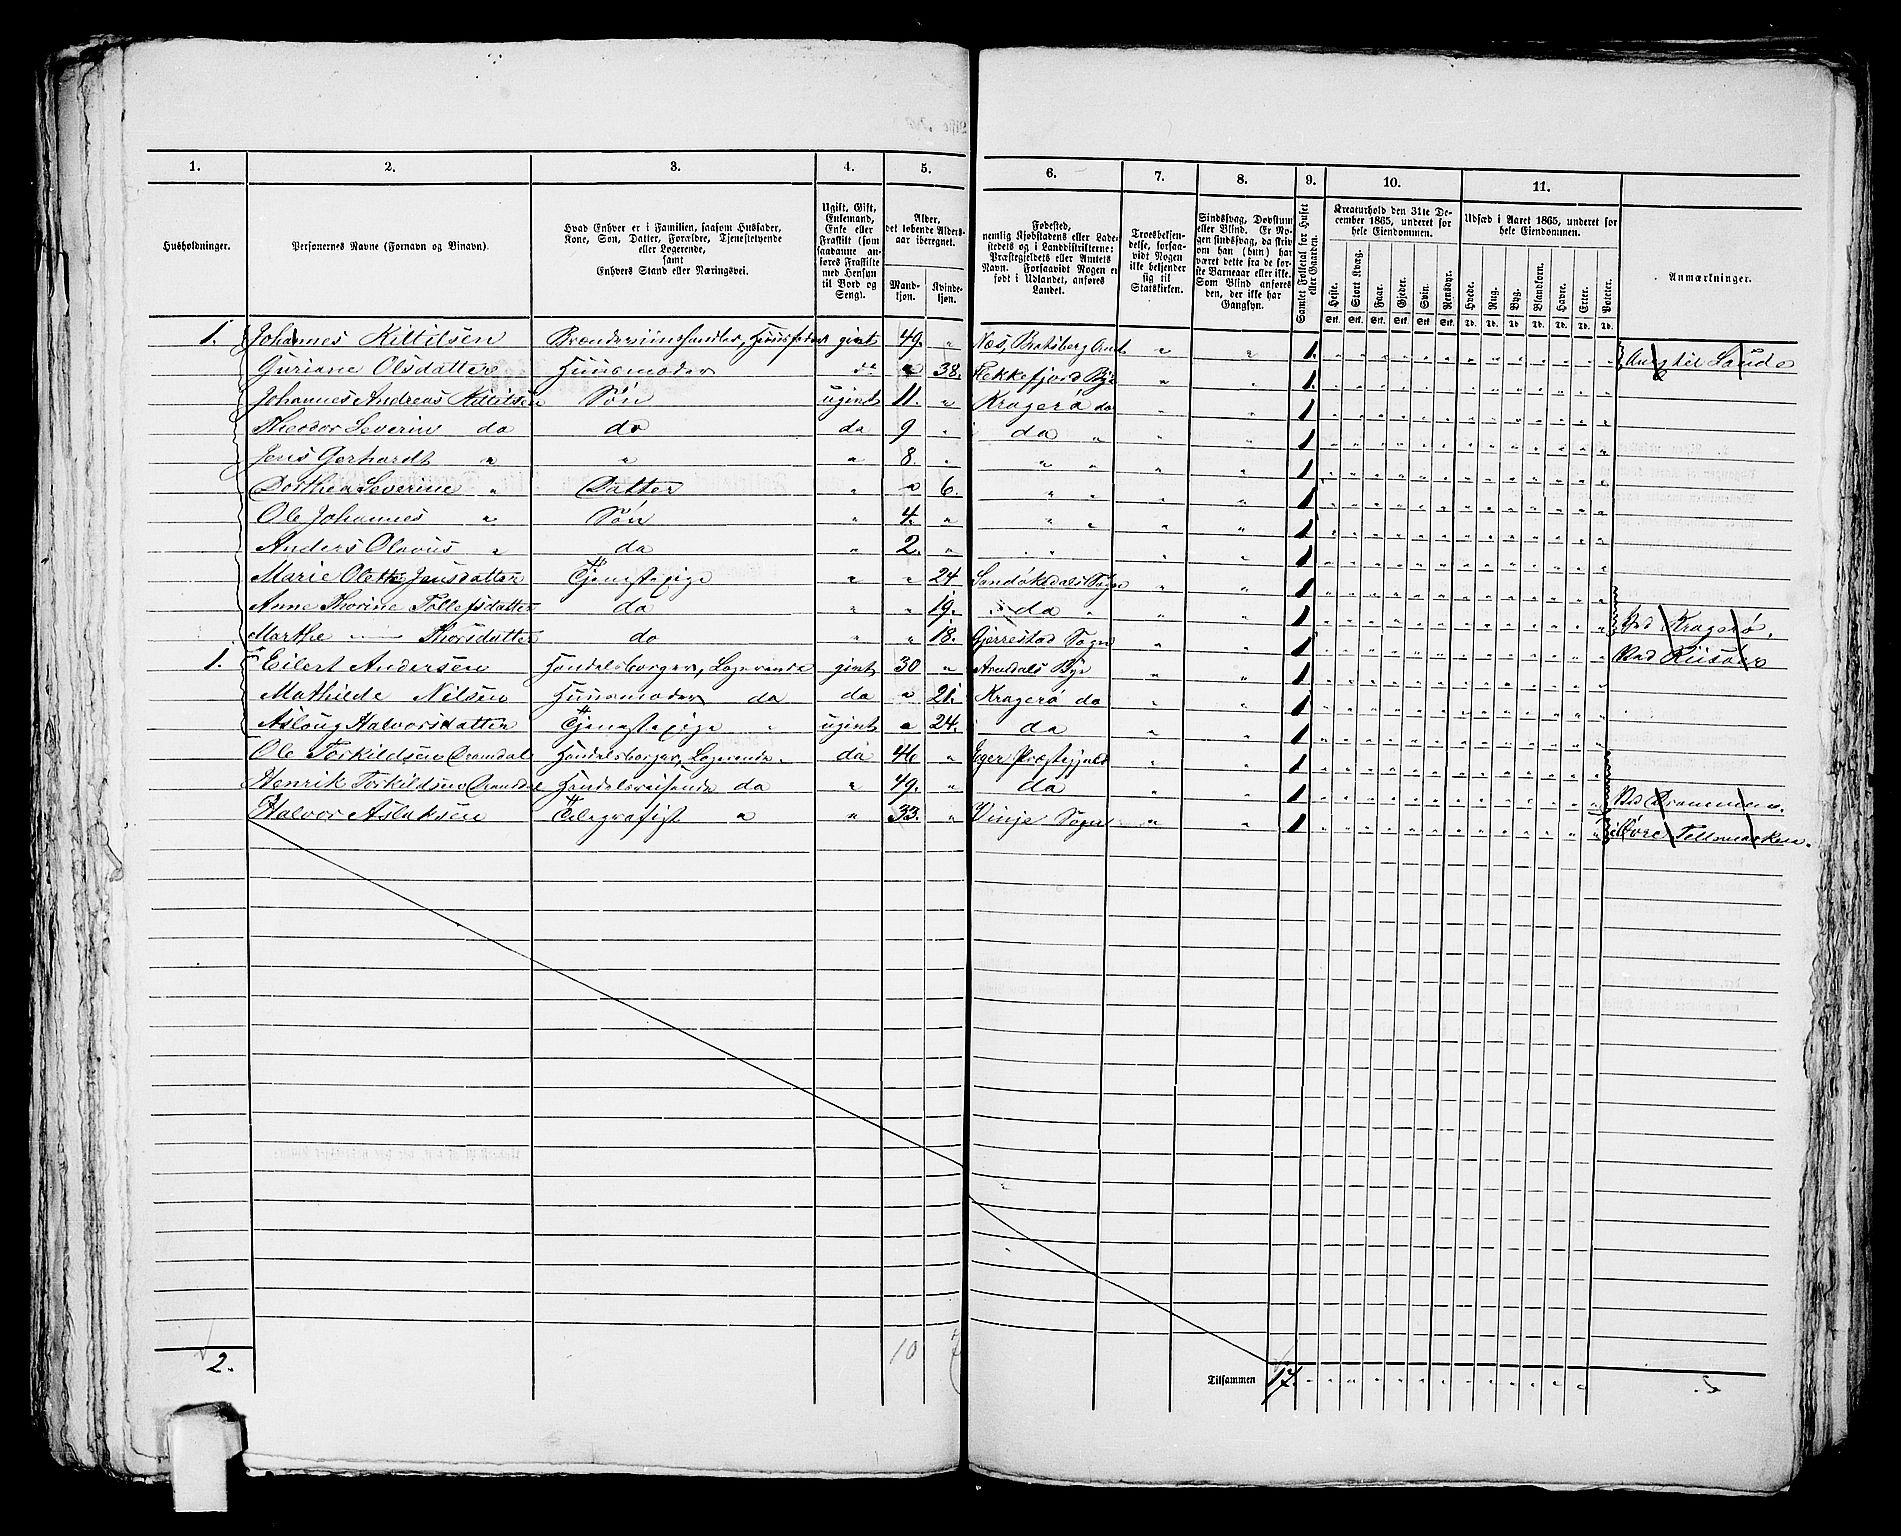 1. 2. 3. 4. 5. 6. 7. 8. 9. 10. 11.
Husholdninger.
Personernes Navne (Fornavn og Tilnavn).
Hvad Enhver er i Familien, saasom Husfader, Kone, Søn, Datter, Forældre, Tjenestetyende eller Logerende, samt Enhvers Stand eller Næringsvei.
Ugift, Gift, Enkemand, Enke eller Fraskilt (som saadanne anføres Fraskilte med Hensyn til Bord og Seng).
Alder, det løbende Alders-aar iberegnet.
Mand-kjøn. Kvinde-kjøn.
Fødested, nemlig Kjøbstadens eller Ladestedets og i Landdistrikterne: Præstegjeldets eller Amtets Navn. Forsaavidt Nogen er født i Udlandet, anføres Landet.
Troesbekjendelse, forsaavidt Nogen ikke bekjender sig til Statskirken.
Sindssvag, Døvstum eller Blind. Er Nogen sindssvag, da skriv om han (hun) har været dette fra de første Barneaar eller ikke. Som Blind anføres den, der ikke har Gangsyn.
Samlet Folketal for Huset eller Gaarden.
Kreaturhold den 31te December 1865, underet for hele Eiendommen.
Heste. Stort Kvæg. Faar. Gjeder. Svin. Rensdyr.
Stk. Stk. Stk. Stk. Stk. Stk.
Udsæd i Aaret 1865, underet for hele Eiendommen.
Hvede. Rug. Byg. Blandkorn. Havre. Erter. Poteter.
Td. Td. Td. Td. Td. Td. Td.
Anmærkninger.
1. Johannes Kittilsen givt 49. " Næs, Bratsberg Amt " " 1.
Guriane Olsdatter Huusmoder do " 38. Flekkefjord Bye " " 1.
Johannes Andreas Kittilsen Søn ugivt 11. " Kragerø do " " 1
Theodor Severin do do da 9 " da " " " 1
Jens Gerhardt " " " 8. " " " " " 1
Dorthea Severine " Datter " " 6. " " " " 1
Ole Johannes " Søn " 4. " " " " " 1
Anders Olavus " do " 2. " " " " " 1
Marie Olette Jensdatter Tjenestepige " " 24 Sandøkedals Sogn " " 1
Anne Thorine Tollefsdatter do " " 19. da " " " 1 Ved Kragerø.
Marthe Thorsdatter do " " 18. Gjerrestad Sogn " " 1 Ved Riisøer
1. Eilert Andersen Handelsborger, Logerende givt 30 " Arendals Bye " " 1
Mathilde Nilsen Huusmoder do do " 21. Kragerø do " " 1
Asloug Halvorsdatter Tjenestepige ugivt " 24. da " " 1
Ole Torkildsen Handelsborger, Logerende da 46 " Eger Præstegjeld " " 1
Henrik Torkildsen Handelsreisende da " 49. " da " " 1 Ved Drammen
Halvor Aslaksen Telegrafist " " 33. " Vinje Sogn " " 1 Øvre Tellemarken.
2. 10 7 Tilsammen 17.